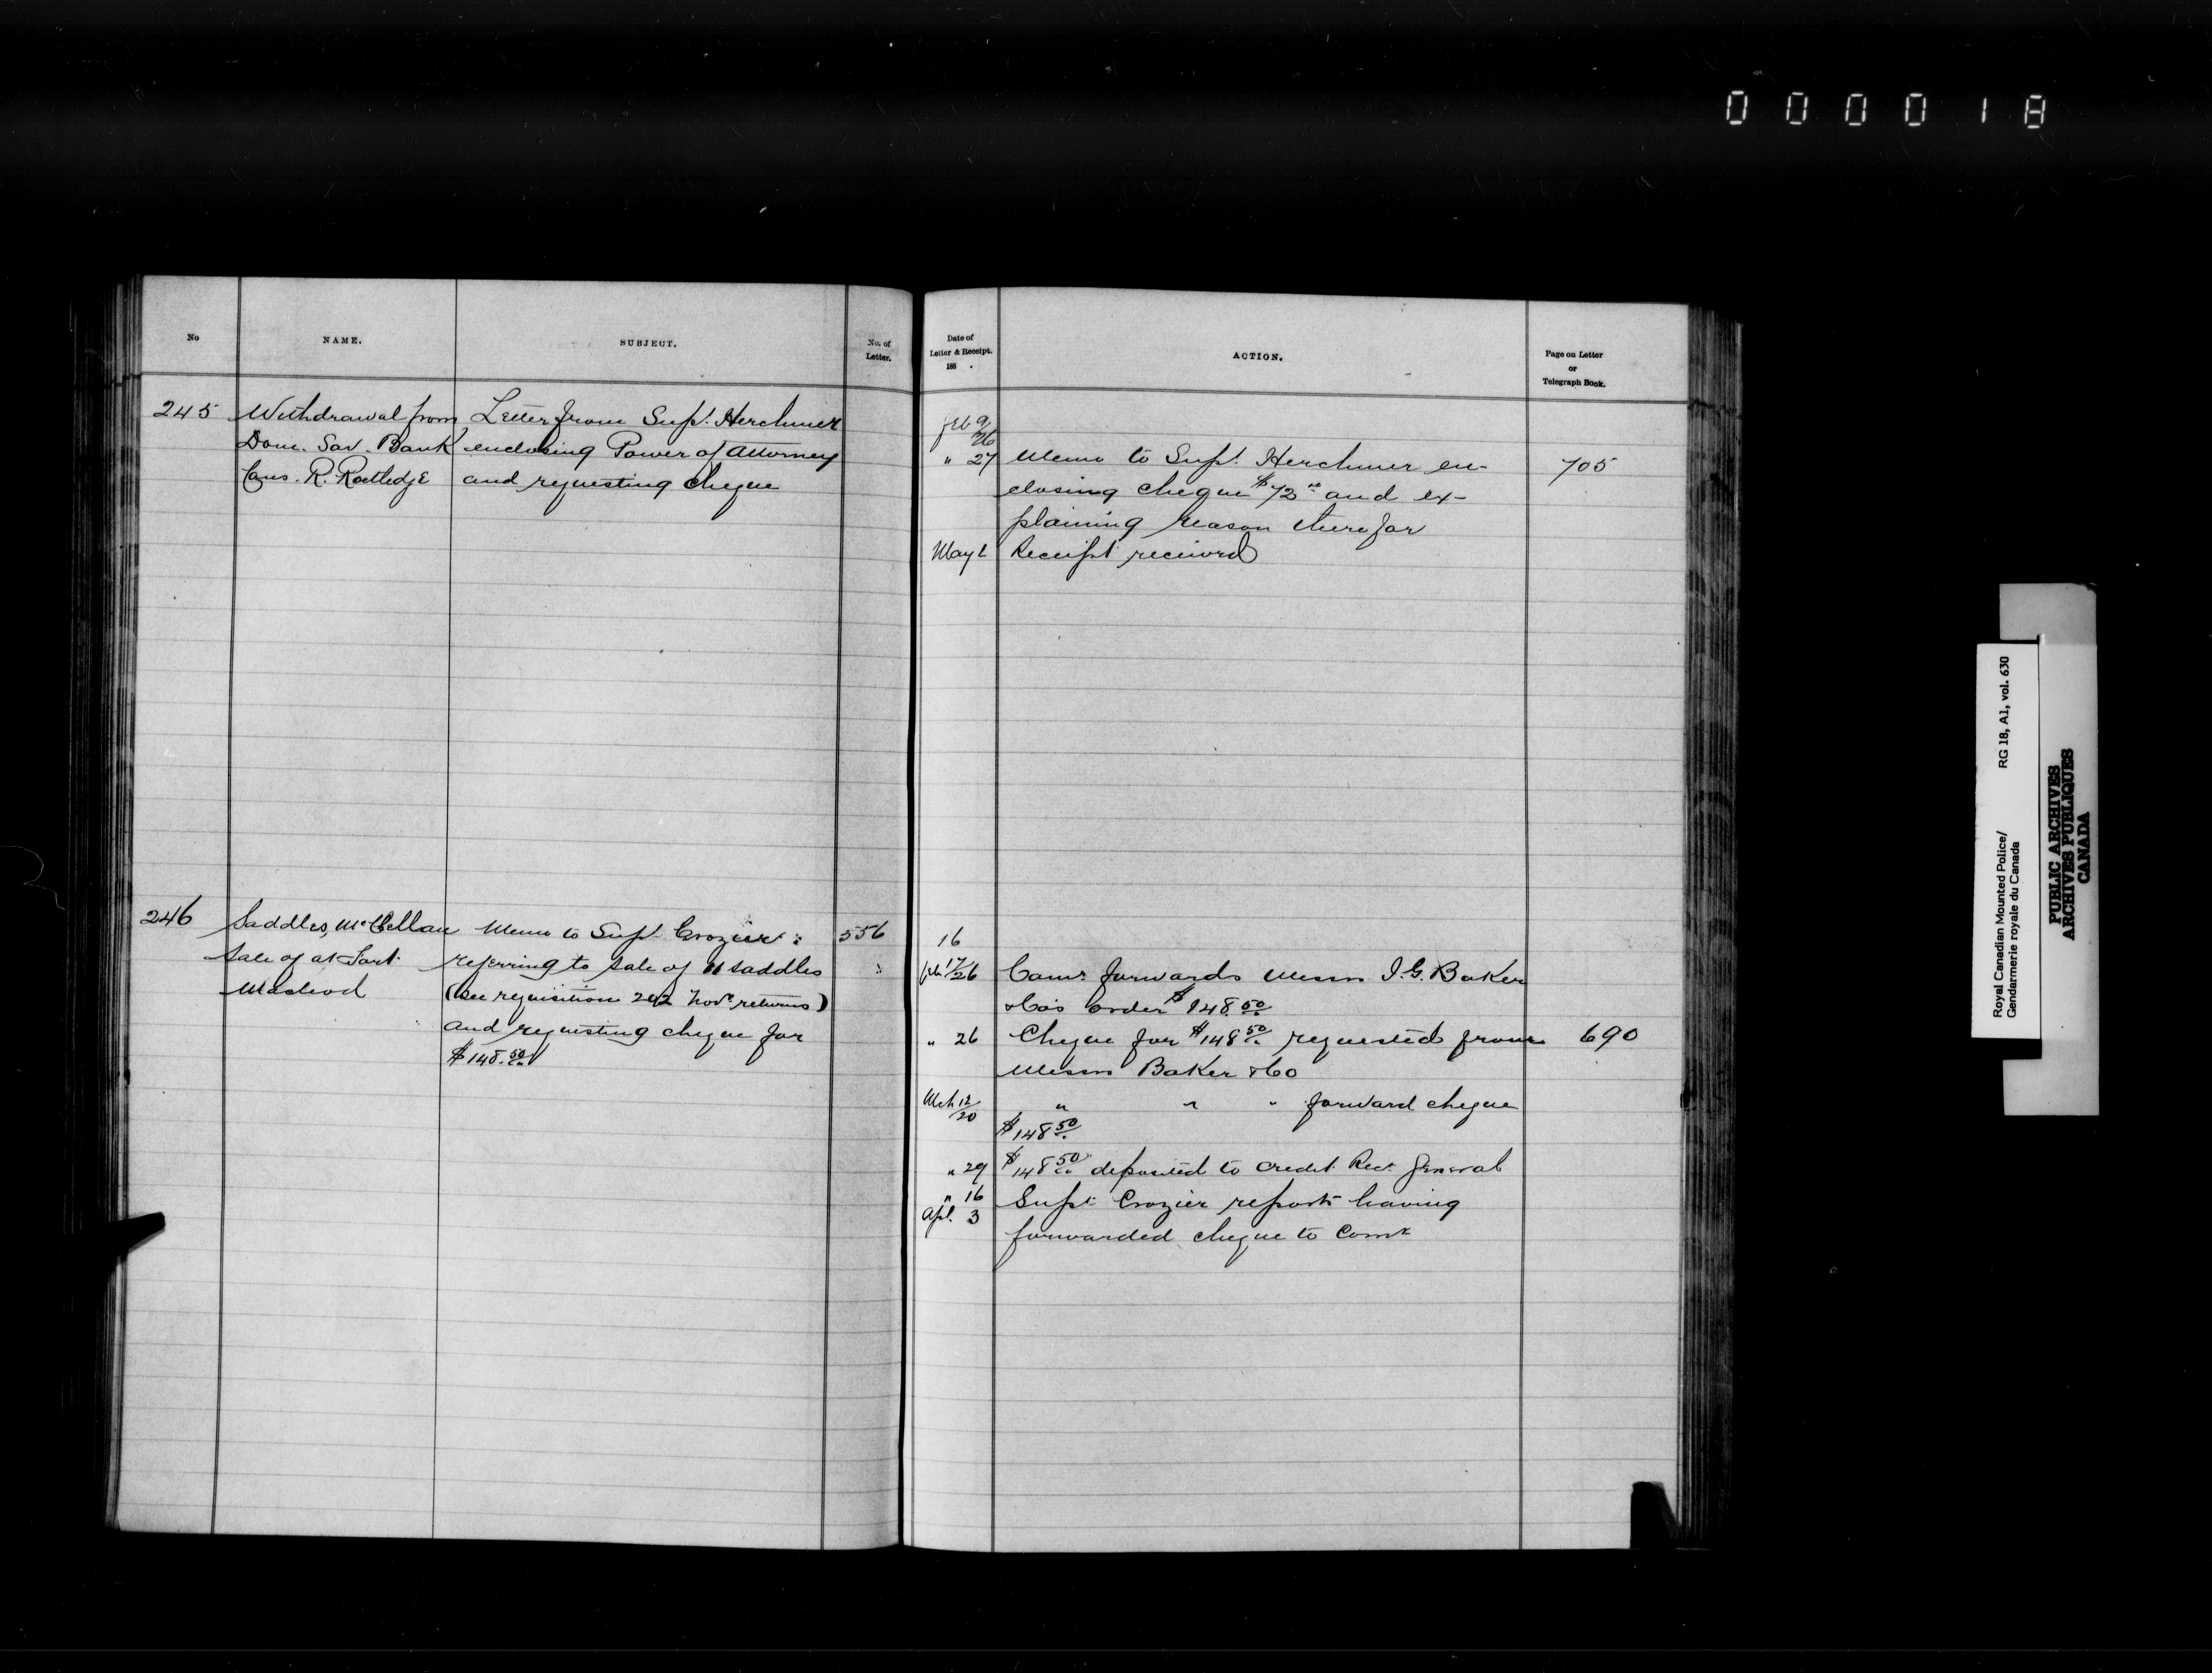 000018
No
NAME.
SUBJECT.
No. of
Letter.
245
Withdrawal from
Dom. Sav. Bank
Cons. R. Routledge
Letter from Supt. Herchmer
enclosing Power of Attorney
and requesting cheque
246
Saddles, McClellan
Sale of at Fort
Macleod
Memo to Supt Crozier
referring to sale of 11 saddles
(see requisition 242 Novr. returns)
and requesting cheque for
$148.50
556
Date of
Letter & Receipt.
188 .
ACTION.
Page on Letter
or
Telegraph Book.
Feb 9/26
" 27 Memo to Supt. Herchmer en- 705
closing cheque $72 and ex-
plaining reason therefor
May 2 Receipt received
16
Feb 17/26 Comr. forwards Messrs I.G. Baker
& Co's order $148.50
" 26 Cheque for $148.50 requested from 690
Messrs Baker & Co
Mch 12/20 " " " forward cheque
$148.50
" 29 $148.50 deposited to credit Recr. General
" 16
Apl. 3
Supt. Crozier reports having
forwarded cheque to Comr
Royal Canadian Mounted Police/ RG 18, A1, vol. 630
Gendarmerie royale du Canada
PUBLIC ARCHIVES
ARCHIVES PUBLIQUES
CANADA